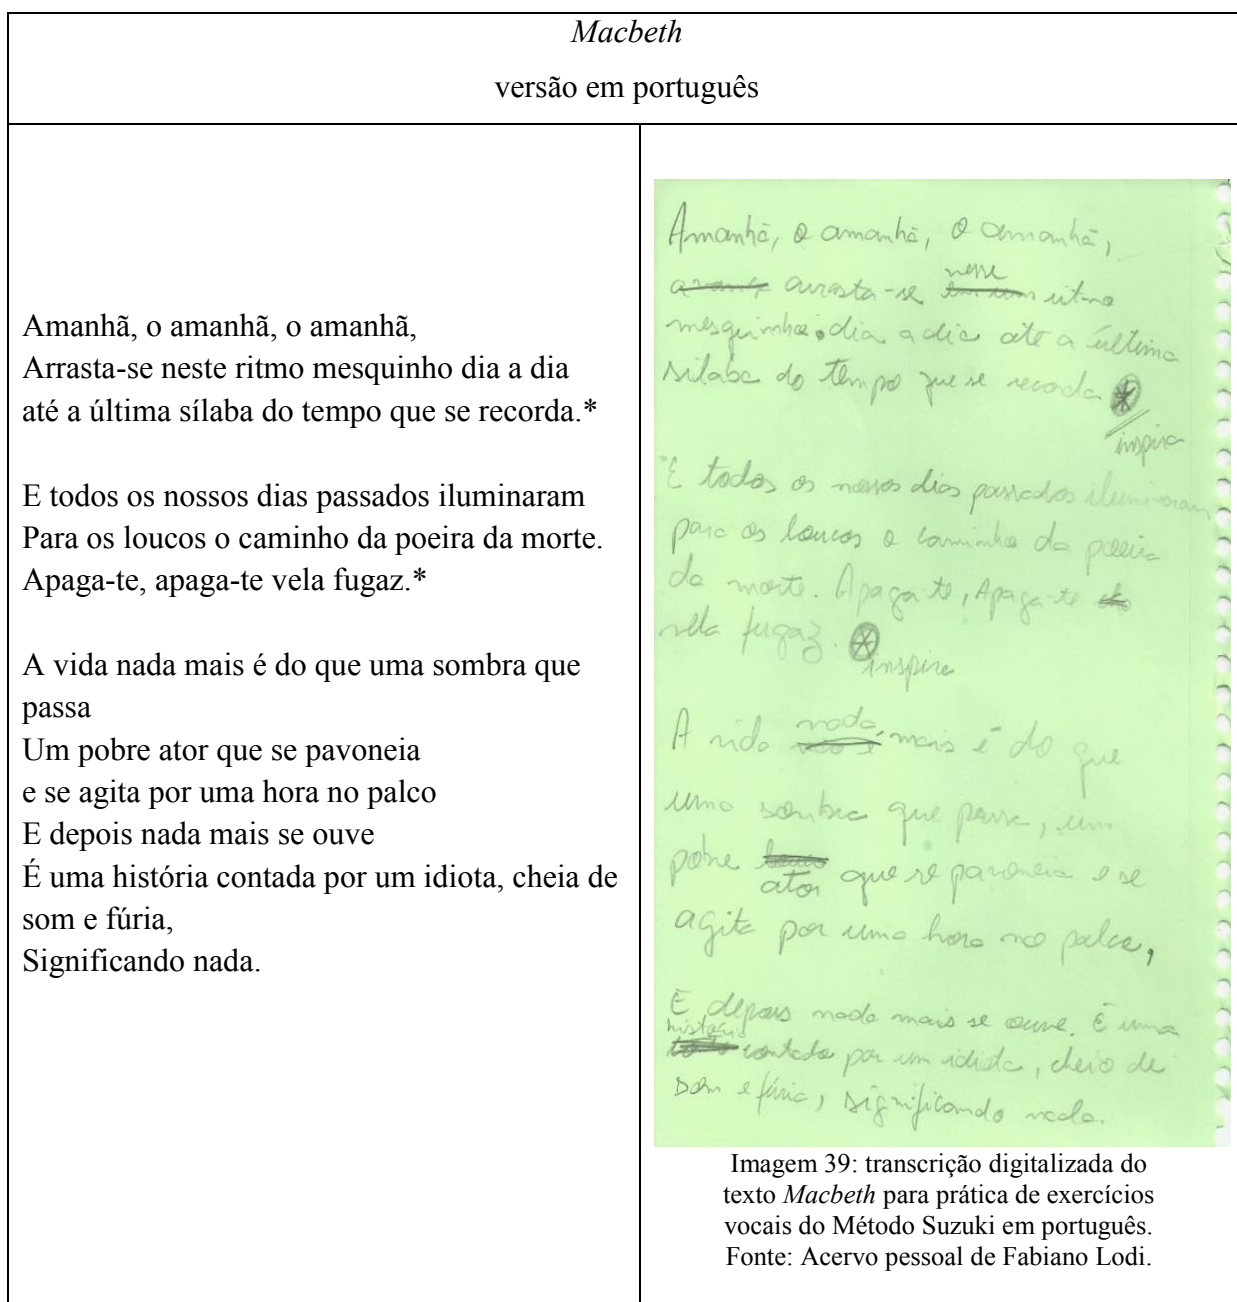 Macbeth
versão em português
Amanhã, o amanhã, o amanhã,
Arrasta-se neste ritmo mesquinho dia a dia
até a última sílaba do tempo que se recorda.*
E todos os nossos dias passados iluminaram
Para os loucos o caminho da poeira da morte.
Apaga-te, apaga-te vela fugaz.*
A vida nada mais é do que uma sombra que
passa
Um pobre ator que se pavoneia
e se agita por uma hora no palco
E depois nada mais se ouve
É uma história contada por um idiota, cheia de
som e fúria,
Significando nada.
Amanhã, o amanhã, o amanhã,
nesse
arrasta-se ritmo
mesquinho dia a dia até a última
sílaba do tempo que se recorda
inspira
E todos os nossos dias passados iluminaram
para os loucos o caminho da poeira
da morte. Apaga-te, Apaga-te
vela fugaz.
inspira
A vida nada mais é do que
uma sombra que passa, um
pobre ator que se pavoneia e se
agita por uma hora no palco,
E depois nada mais se ouve. É uma
história
contada por um idiota, cheio de
som e fúria, significando nada.
Imagem 39: transcrição digitalizada do
texto Macbeth para prática de exercícios
vocais do Método Suzuki em português.
Fonte: Acervo pessoal de Fabiano Lodi.